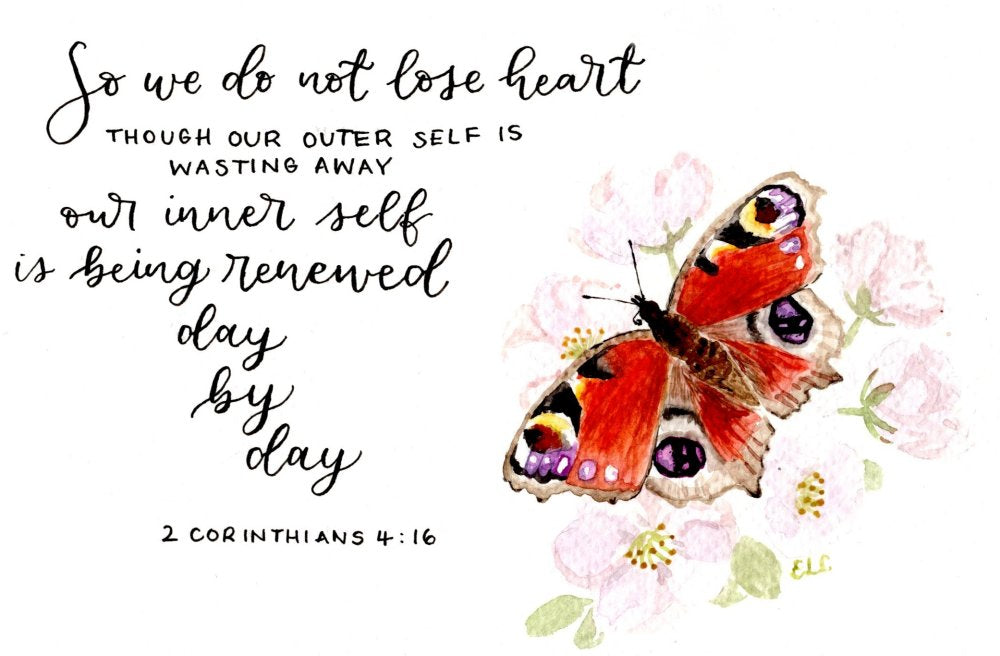 So we do not lose heart
THOUGH OUR OUTER SELF IS
WASTING AWAY
our inner self
is being renewed
day
by
day
2 CORINTHIANS 4:16